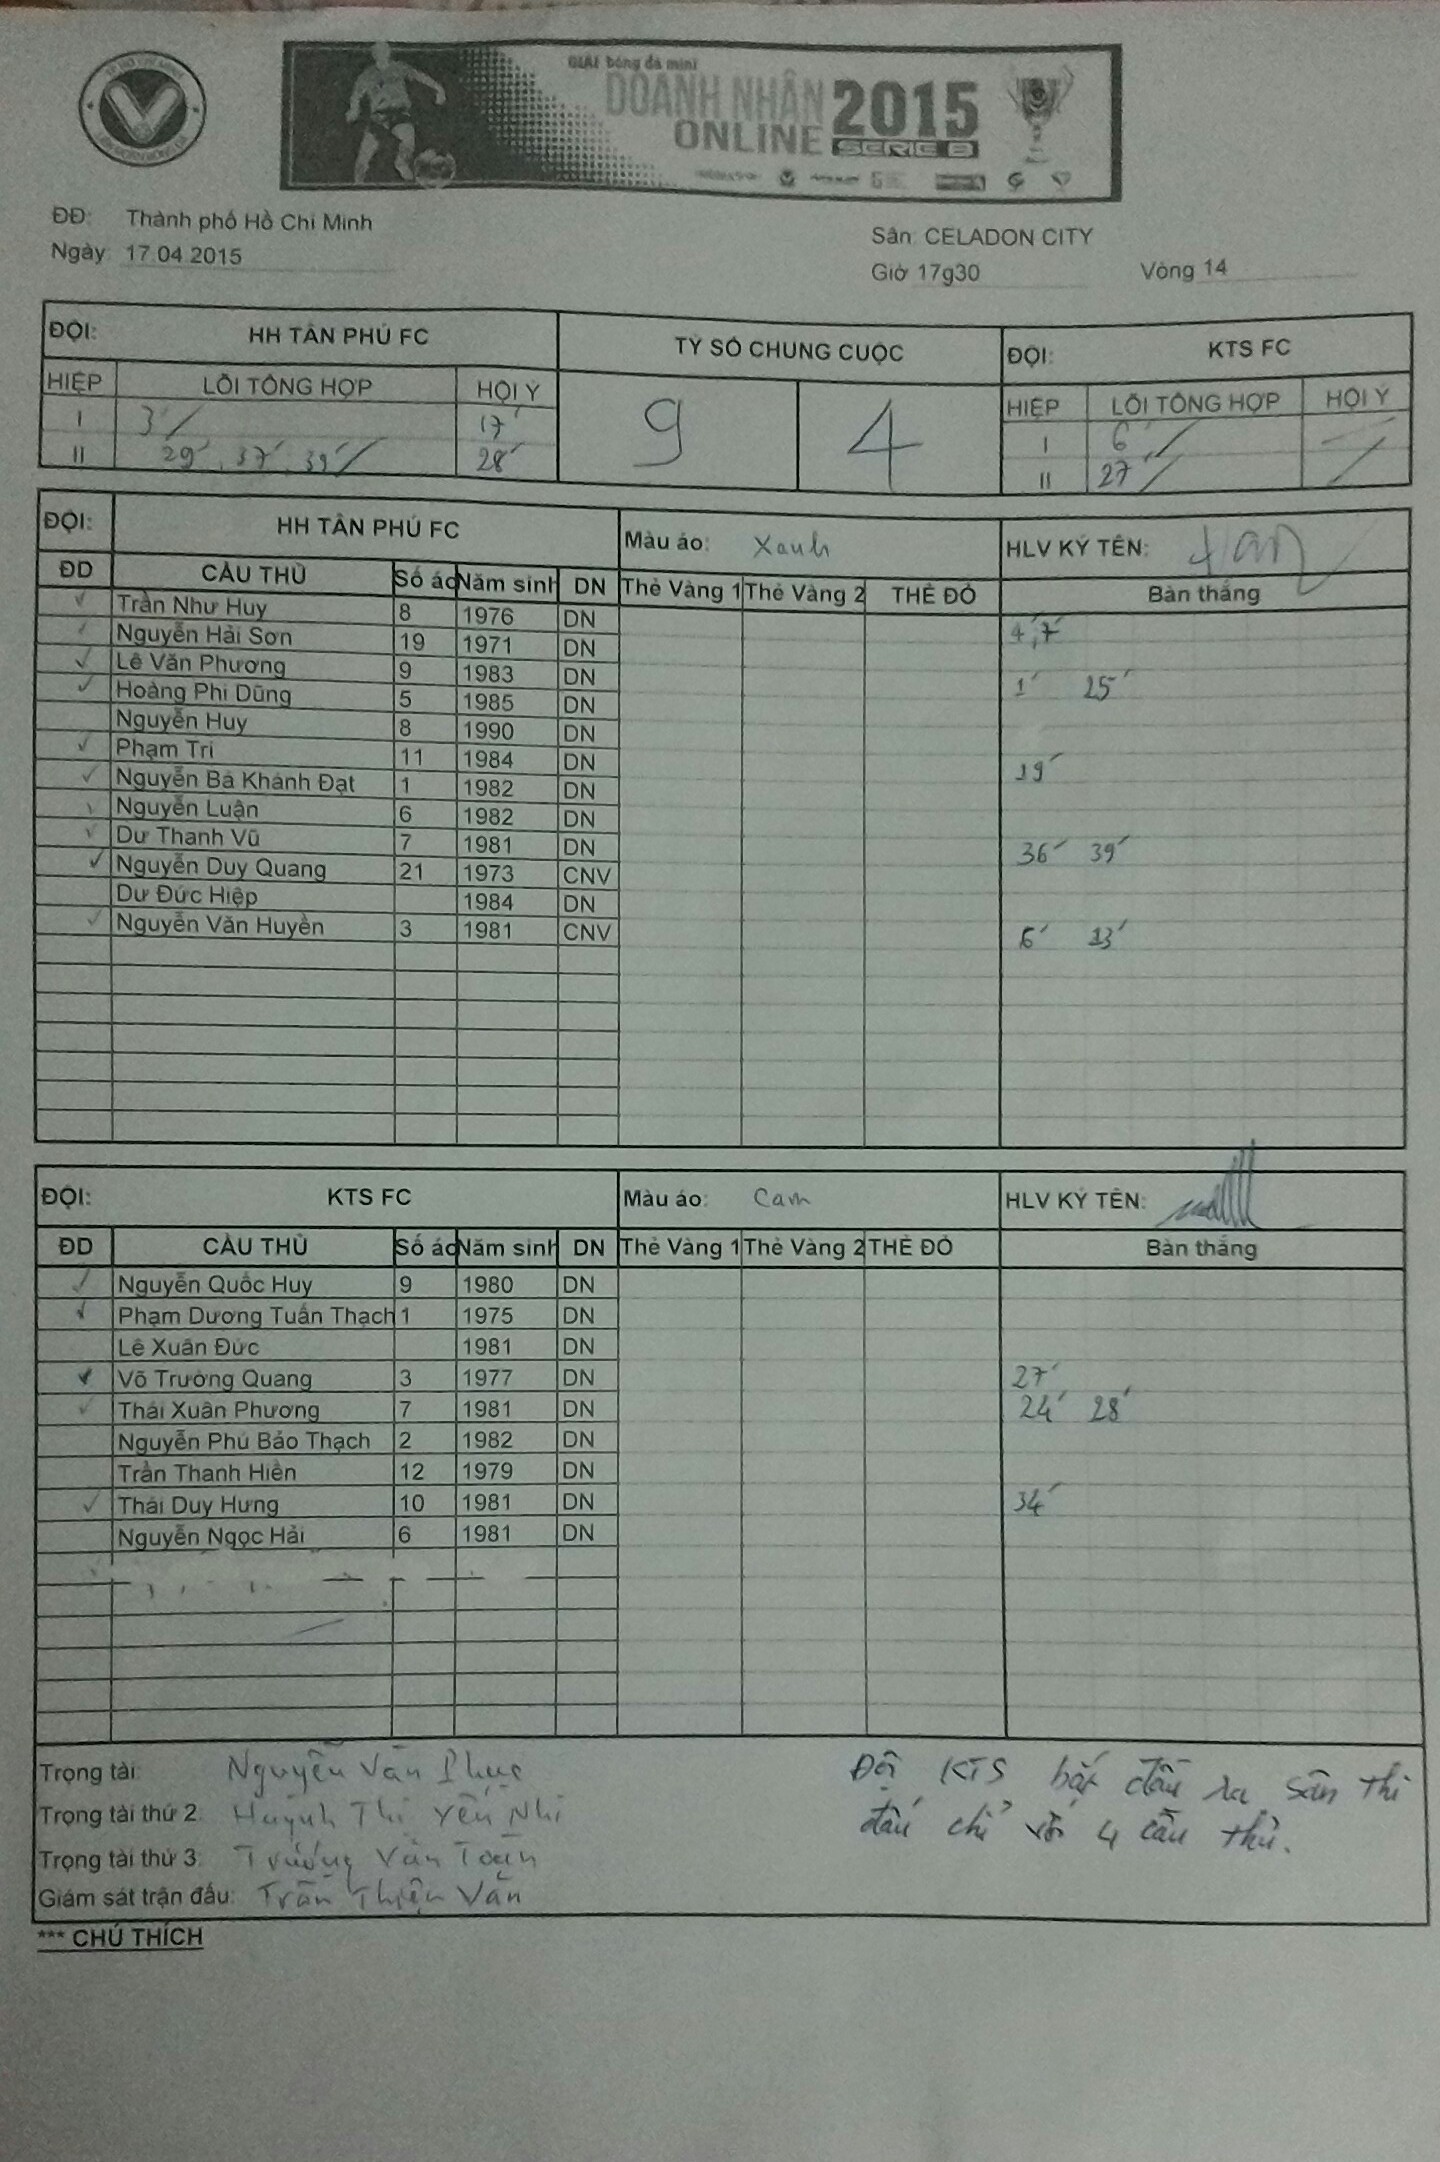 TP HỒ CHÍ MINH
GIẢI bóng đá mini
DOANH NHÂN 2015
ONLINE SERIE B
ĐĐ: Thành phố Hồ Chí Minh
Sân: CELADON CITY
Ngày: 17.04.2015
Giờ 17g30 Vòng 14
ĐỘI: HH TÂN PHÚ FC TỶ SỐ CHUNG CUỘC ĐỘI: KTS FC
HIỆP LỖI TỔNG HỢP HỘI Ý 9 4 HIỆP LỖI TỔNG HỢP HỘI Ý
I 3' / 17' I 6' /
II 29', 37', 39' / 28' II 27' /
ĐỘI: HH TÂN PHÚ FC Màu áo: Xanh HLV KÝ TÊN:
ĐD CẦU THỦ Số áo Năm sinh DN Thẻ Vàng 1 Thẻ Vàng 2 THẺ ĐỎ Bàn thắng
✓ Trần Như Huy 8 1976 DN 4', 7'
✓ Nguyễn Hải Sơn 19 1971 DN
✓ Lê Văn Phương 9 1983 DN 1' 25'
✓ Hoàng Phi Dũng 5 1985 DN
Nguyễn Huy 8 1990 DN
✓ Phạm Trí 11 1984 DN 19'
✓ Nguyễn Bá Khánh Đạt 1 1982 DN
✓ Nguyễn Luận 6 1982 DN
✓ Dư Thanh Vũ 7 1981 DN 36' 39'
✓ Nguyễn Duy Quang 21 1973 CNV
Dư Đức Hiệp 1984 DN
✓ Nguyễn Văn Huyền 3 1981 CNV 6' 13'
ĐỘI: KTS FC Màu áo: Cam HLV KÝ TÊN:
ĐD CẦU THỦ Số áo Năm sinh DN Thẻ Vàng 1 Thẻ Vàng 2 THẺ ĐỎ Bàn thắng
✓ Nguyễn Quốc Huy 9 1980 DN
✓ Phạm Dương Tuấn Thạch 1 1975 DN
Lê Xuân Đức 1981 DN
✓ Võ Trường Quang 3 1977 DN 27'
✓ Thái Xuân Phương 7 1981 DN 24' 28'
Nguyễn Phú Bảo Thạch 2 1982 DN
Trần Thanh Hiền 12 1979 DN
✓ Thái Duy Hưng 10 1981 DN 34'
Nguyễn Ngọc Hải 6 1981 DN
Trọng tài: Nguyễn Văn Phục
Trọng tài thứ 2: Huỳnh Thị Yến Nhi
Trọng tài thứ 3: Trương Văn Toàn
Giám sát trận đấu: Trần Thiện Văn
Đội KTS bắt đầu ra sân thi
đấu chỉ với 4 cầu thủ.
*** CHÚ THÍCH